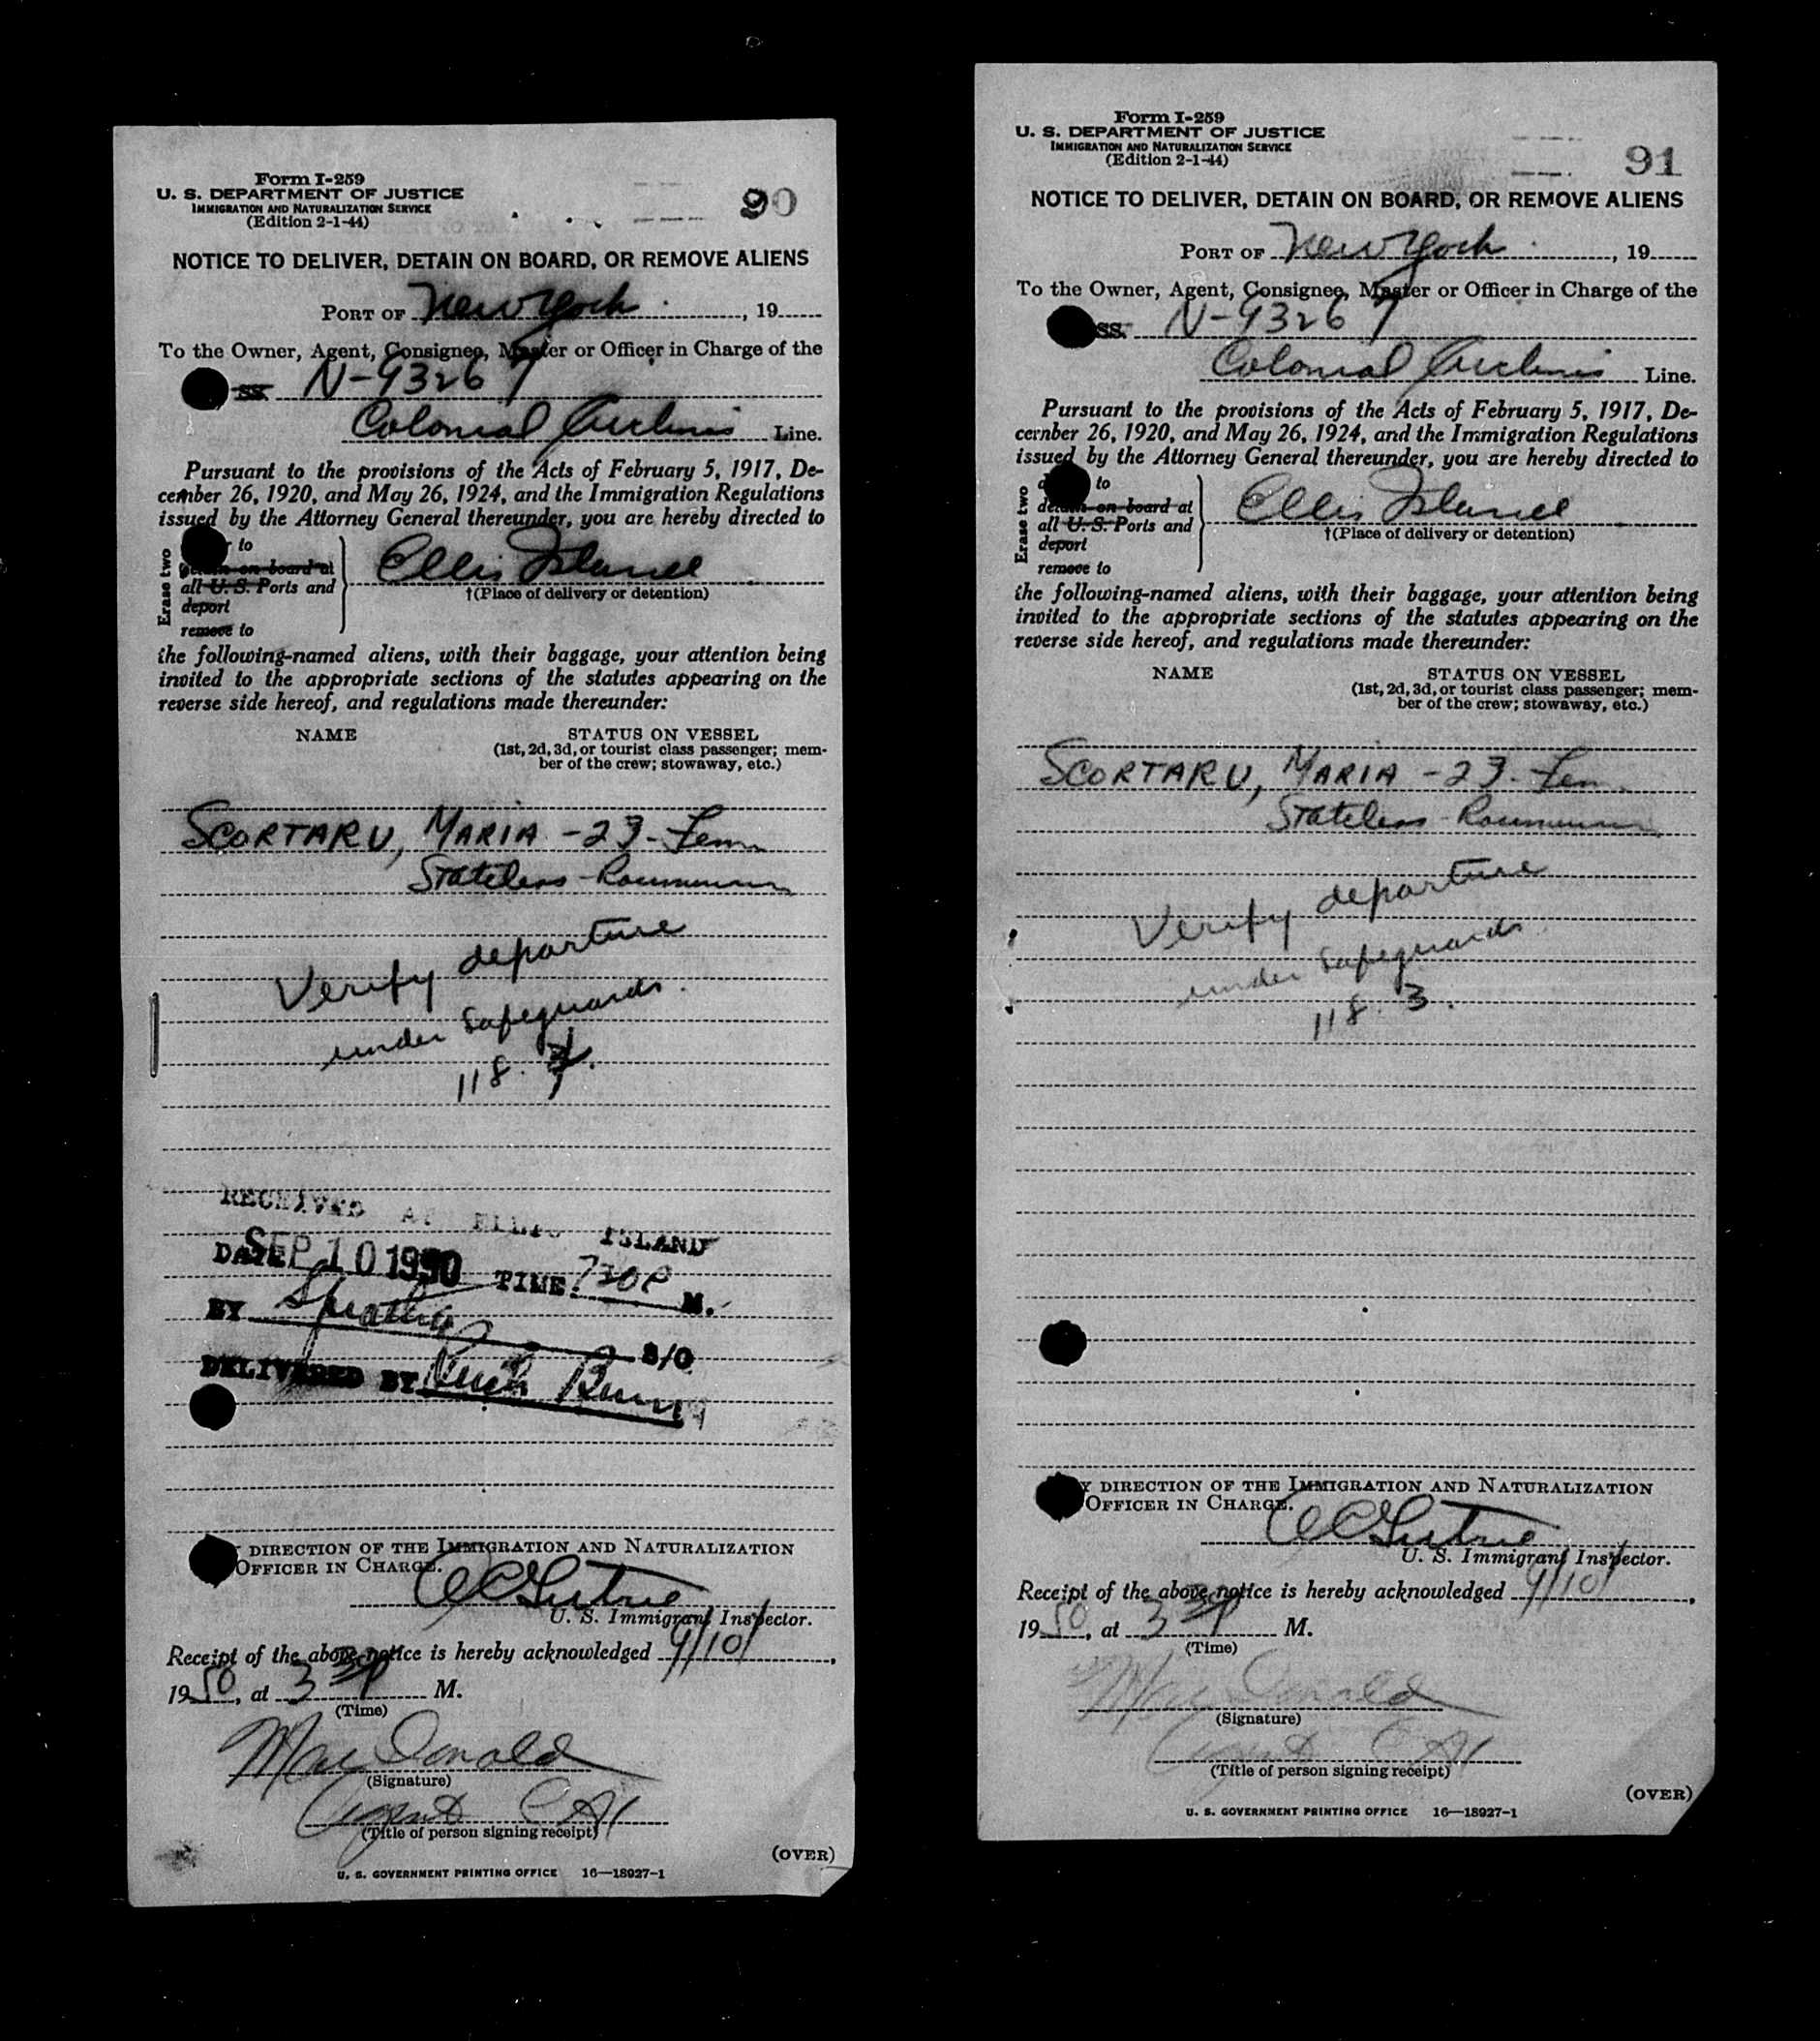 Form I-259
U. S. DEPARTMENT OF JUSTICE
IMMIGRATION AND NATURALIZATION SERVICE
(Edition 2-1-44)
90
NOTICE TO DELIVER, DETAIN ON BOARD, OR REMOVE ALIENS
PORT OF New York , 19
To the Owner, Agent, Consignee, Master or Officer in Charge of the
SS. N-93267
Colonial Airlines Line.
Pursuant to the provisions of the Acts of February 5, 1917, De-
cember 26, 1920, and May 26, 1924, and the Immigration Regulations
issued by the Attorney General thereunder, you are hereby directed to
Erase two
to
detain on board at
all U. S. Ports and
deport
remove to
Ellis Island
†(Place of delivery or detention)
the following-named aliens, with their baggage, your attention being
invited to the appropriate sections of the statutes appearing on the
reverse side hereof, and regulations made thereunder:
NAME STATUS ON VESSEL
(1st, 2d, 3d, or tourist class passenger; mem-
ber of the crew; stowaway, etc.)
SCORTARU, MARIA - 23 - Fem
Stateless - Roumanian
Verify departure
under safeguards.
118.
RECEIVED AT ELLIS ISLAND
DATE SEP 10 1950 TIME 730P M.
BY S/O
DELIVERED BY
Y DIRECTION OF THE IMMIGRATION AND NATURALIZATION
OFFICER IN CHARGE.
U. S. Immigrant Inspector.
Receipt of the above notice is hereby acknowledged 9/10/ ,
1950, at 3 30P M.
(Time)
MacDonald
(Signature)
Agent CAl
(Title of person signing receipt)
(OVER)
U. S. GOVERNMENT PRINTING OFFICE 16—18927-1
Form I-259
U. S. DEPARTMENT OF JUSTICE
IMMIGRATION AND NATURALIZATION SERVICE
(Edition 2-1-44)
91
NOTICE TO DELIVER, DETAIN ON BOARD, OR REMOVE ALIENS
PORT OF New York , 19
To the Owner, Agent, Consignee, Master or Officer in Charge of the
SS. N-93267
Colonial Airlines Line.
Pursuant to the provisions of the Acts of February 5, 1917, De-
cember 26, 1920, and May 26, 1924, and the Immigration Regulations
issued by the Attorney General thereunder, you are hereby directed to
Erase two
to
detain on board at
all U. S. Ports and
deport
remove to
Ellis Island
†(Place of delivery or detention)
the following-named aliens, with their baggage, your attention being
invited to the appropriate sections of the statutes appearing on the
reverse side hereof, and regulations made thereunder:
NAME STATUS ON VESSEL
(1st, 2d, 3d, or tourist class passenger; mem-
ber of the crew; stowaway, etc.)
SCORTARU, MARIA - 23 - Fem
Stateless - Roumanian
Verify departure
under safeguards.
118.3.
Y DIRECTION OF THE IMMIGRATION AND NATURALIZATION
OFFICER IN CHARGE.
U. S. Immigrant Inspector.
Receipt of the above notice is hereby acknowledged 9/10/ ,
1950, at 3 30P M.
(Time)
MacDonald
(Signature)
Agent CAl
(Title of person signing receipt)
(OVER)
U. S. GOVERNMENT PRINTING OFFICE 16—18927-1